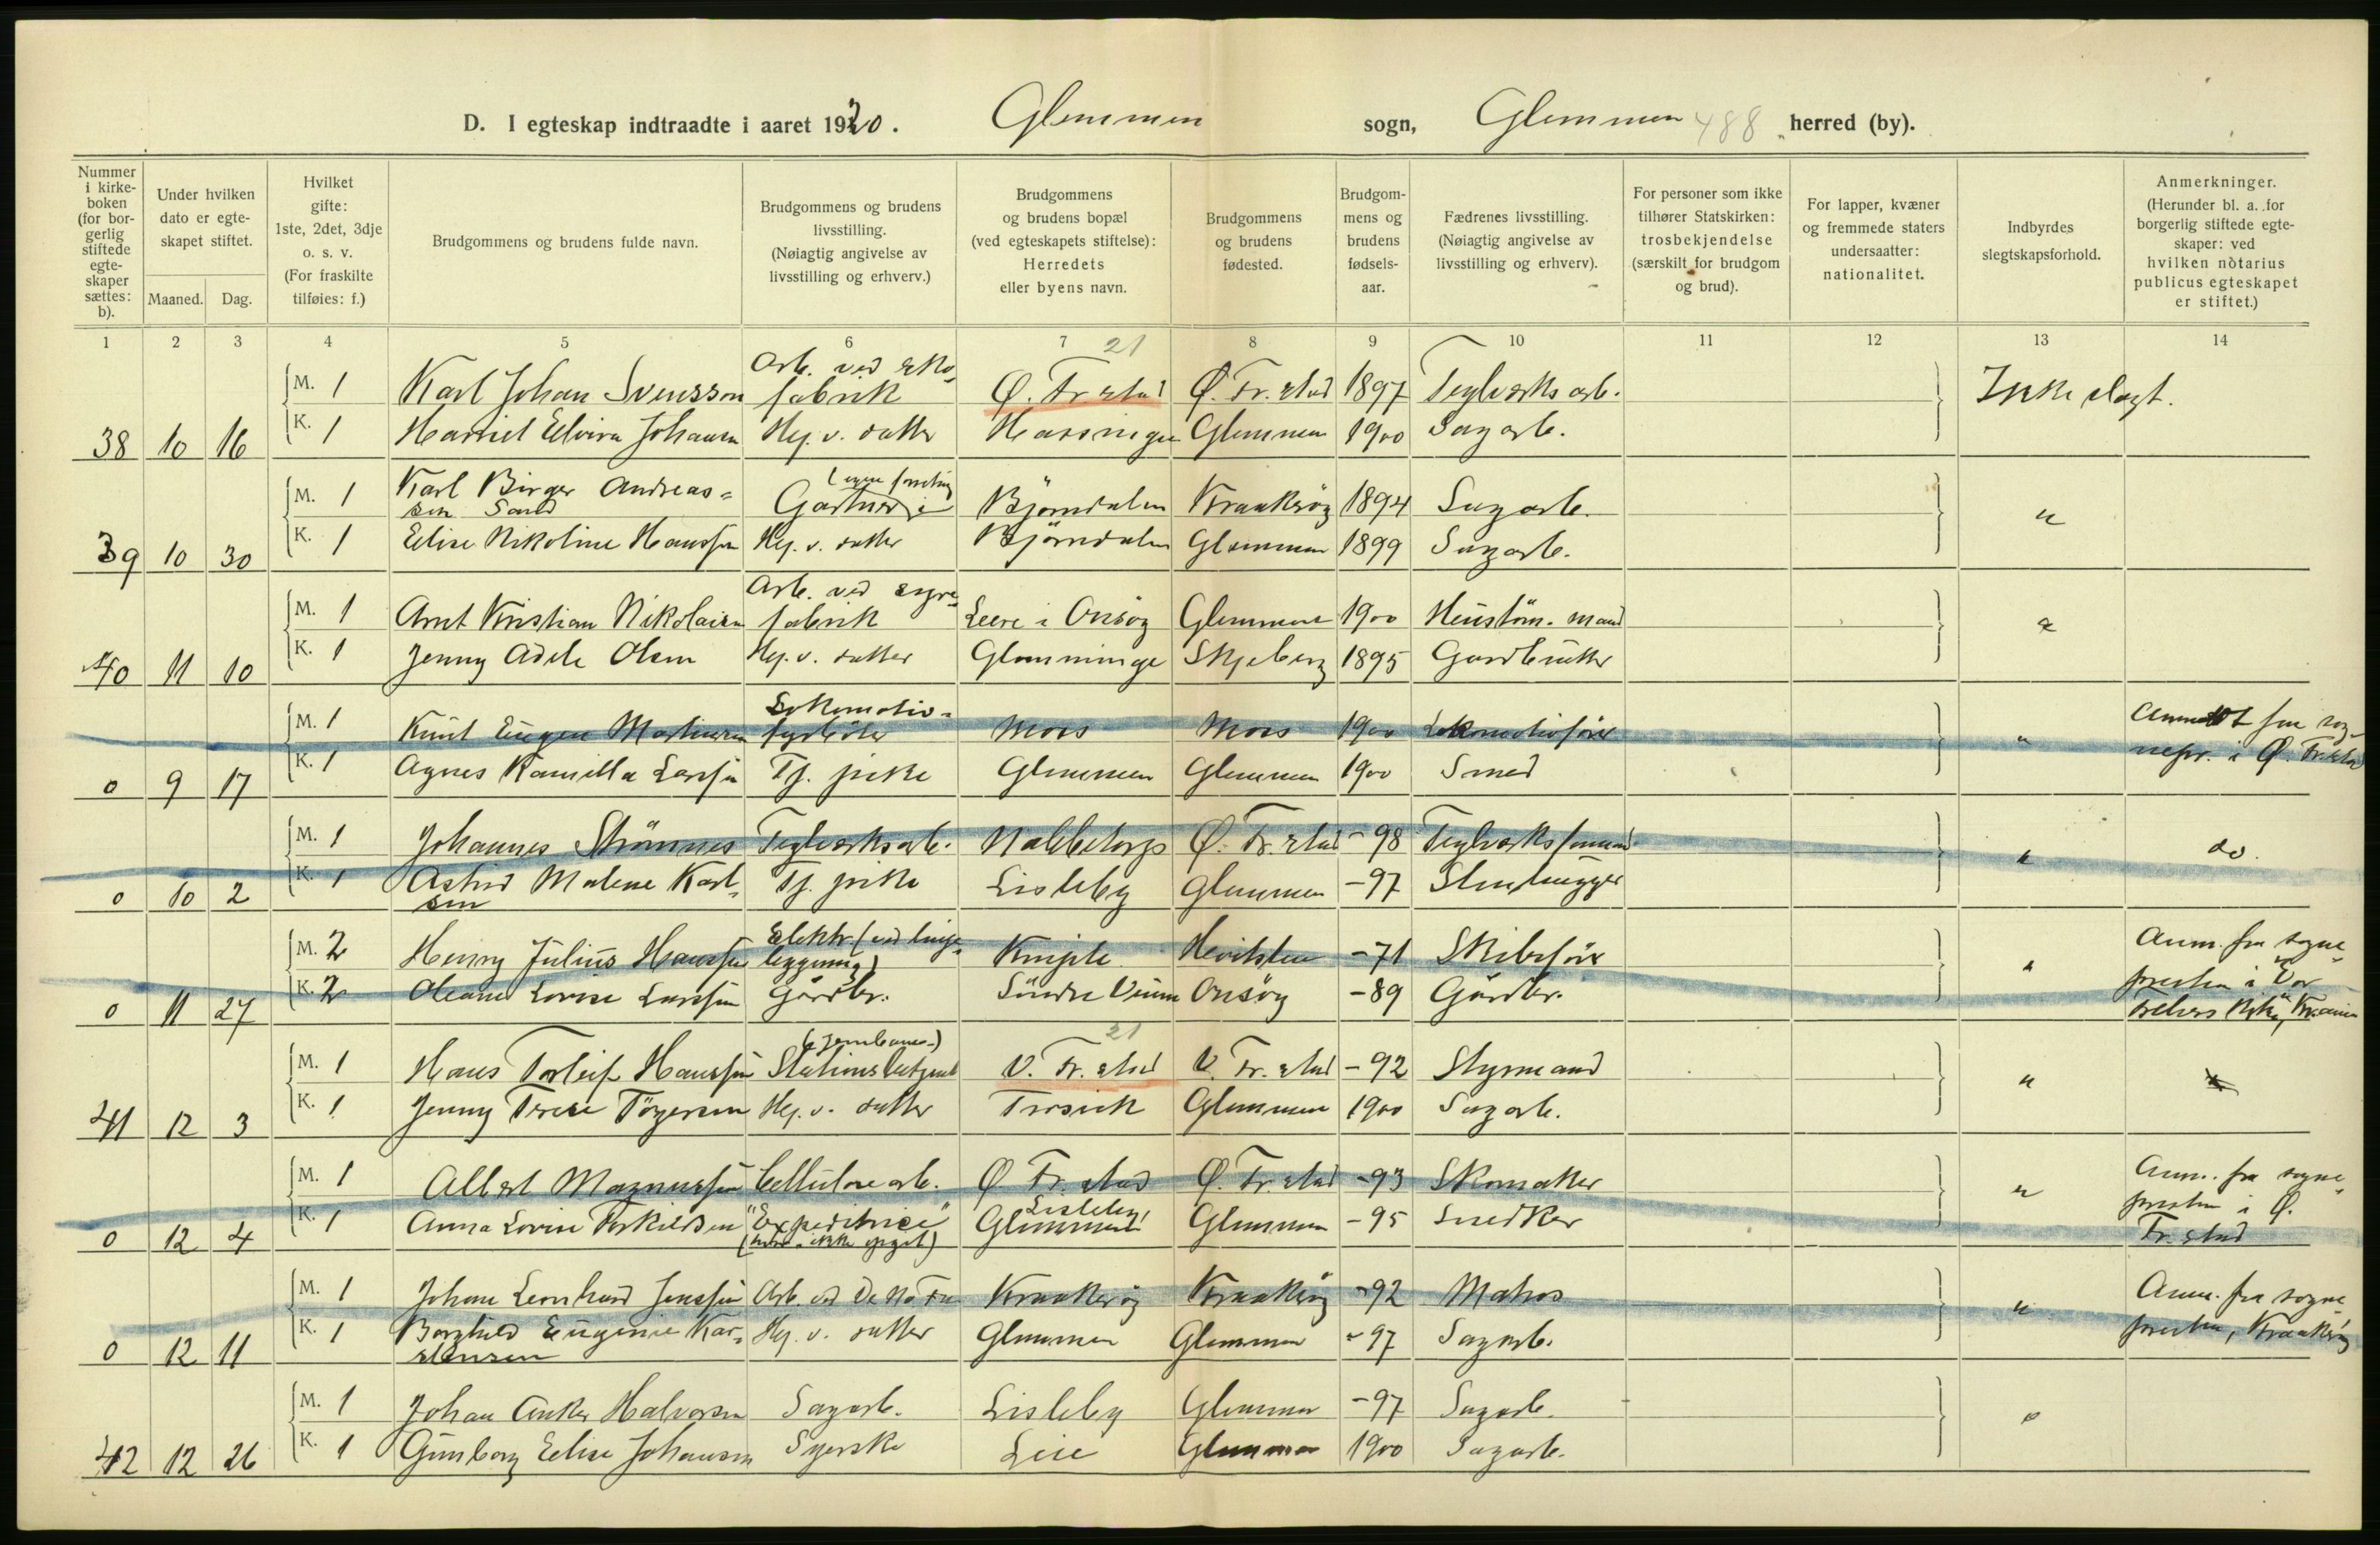 D. I egteskap indtraadte i aaret 1920. Glemmen sogn, Glemmen 488 herred (by).
Nummer i kirke- boken (for bor- gerlig stiftede egte- skaper sættes: b).
Under hvilken dato er egte- skapet stiftet.
Maaned. Dag.
Hvilket gifte: 1ste, 2det, 3dje o. s. v. (For fraskilte tilføies: f.)
Brudgommens og brudens fulde navn.
Brudgommens og brudens livsstilling. (Nøiagtig angivelse av livsstilling og erhverv.)
Brudgommens og brudens bopæl (ved egteskapets stiftelse): Herredets eller byens navn.
Brudgommens og brudens fødested.
Brudgom- mens og brudens fødsels- aar.
Fædrenes livsstilling. (Nøiagtig angivelse av livsstilling og erhverv).
For personer som ikke tilhører Statskirken: trosbekjendelse (særskilt for brudgom og brud).
For lapper, kvæner og fremmede staters undersaatter: nationalitet.
Indbyrdes slegtskapsforhold.
Anmerkninger. (Herunder bl. a. for borgerlig stiftede egte- skaper: ved hvilken notarius publicus egteskapet er stiftet.)
1 2 3 4 5 6 7 8 9 10 11 12 13 14
21
Arb. ved sko-
M. 1 Karl Johan Svensson fabrik Ø. Fr.stad Ø. Fr.stad 1897 Teglverksarb. Ikke slegt.
38 10 16 K. 1 Harriet Elvira Johansen Hj. v. datter Hassingen Glemmen 1900 Sagarb.
M. 1 Karl Birger Andreas- Gartner Bjørndalen Kraakerøy 1894 Sagarb. "
sen Sand
39 10 30 K. 1 Elise Nikoline Hanssen Hj. v. datter Bjørndalen Glemmen 1899 Sagarb.
Arb. ved
M. 1 Arnt Kristian Nikolaisen fabrik Leere i Onsøy Glemmen 1900 mand "
40 11 10 K. 1 Jenny Adele Olsen Hj. v. datter Glomminge Skjeberg 1895 Gardbruker
Lokomotiv-
M. 1 Knut Eugen Martinsen fyrbøter Moss Moss 1900 Lokomotivfører " Anmeldt fra sog-
nepr. i Ø. Fr.stad
0 9 17 K. 1 Agnes Kamilla Larssen Tj. pike Glemmen Glemmen 1900 Smed
M. 1 Johannes Strømnes Teglverksarb. Nabbetorp Ø. Fr.stad -98 Teglverksformand " do.
0 10 2 K. 1 Astrid Malene Karl- Tj. pike Lisleby Glemmen -97 Stenhugger
sen
Elektr. (ved linje-
M. 2 Henry Julius Hanssen leggning) Kniple Hvitsten -71 Skibsfører " Anm. fra sogne-
0 11 27 K. 2 Oleane Lovise Larssen Gårdbr. Søndre Onsøy -89 Gårdbr. presten i Vor
Frelsers Kirke, Kr.ania
(Jernbane-) 21
M. 1 Hans Torleif Hanssen Stationsbetjent V. Fr.stad V. Fr.stad -92 Styrmand "
41 12 3 K. 1 Jenny Terese Tøgersen Hj. v. datter Trosvik Glemmen 1900 Sagarb.
M. 1 Albert Magnussen Cellulosearb. Ø Fr.stad Ø. Fr.stad -93 Skomaker " Anm. fra sogne-
Lisleby, presten i Ø.
0 12 4 K. 1 Anna Lovise Torkildsen "Expeditrice" Glemmen Glemmen -95 Snedker Fr.stad
ikke opgit)
M. 1 Johan Leonhard Jenssen Arb. ved De No Fa Kraakerøy Kraakerøy -92 Matros " Anm. fra sogne
0 12 11 K. 1 Borghild Eugenie Kar- Hj. v. datter Glemmen Glemmen -97 Sagarb. presten, Kraakerøy
stensen
M. 1 Johan Anker Halvorsen Sagarb. Lisleby Glemmen -97 Sagarb. "
42 12 26 K. 1 Gunborg Elise Johansen Syerske Leie Glemmen 1900 Sagarb.